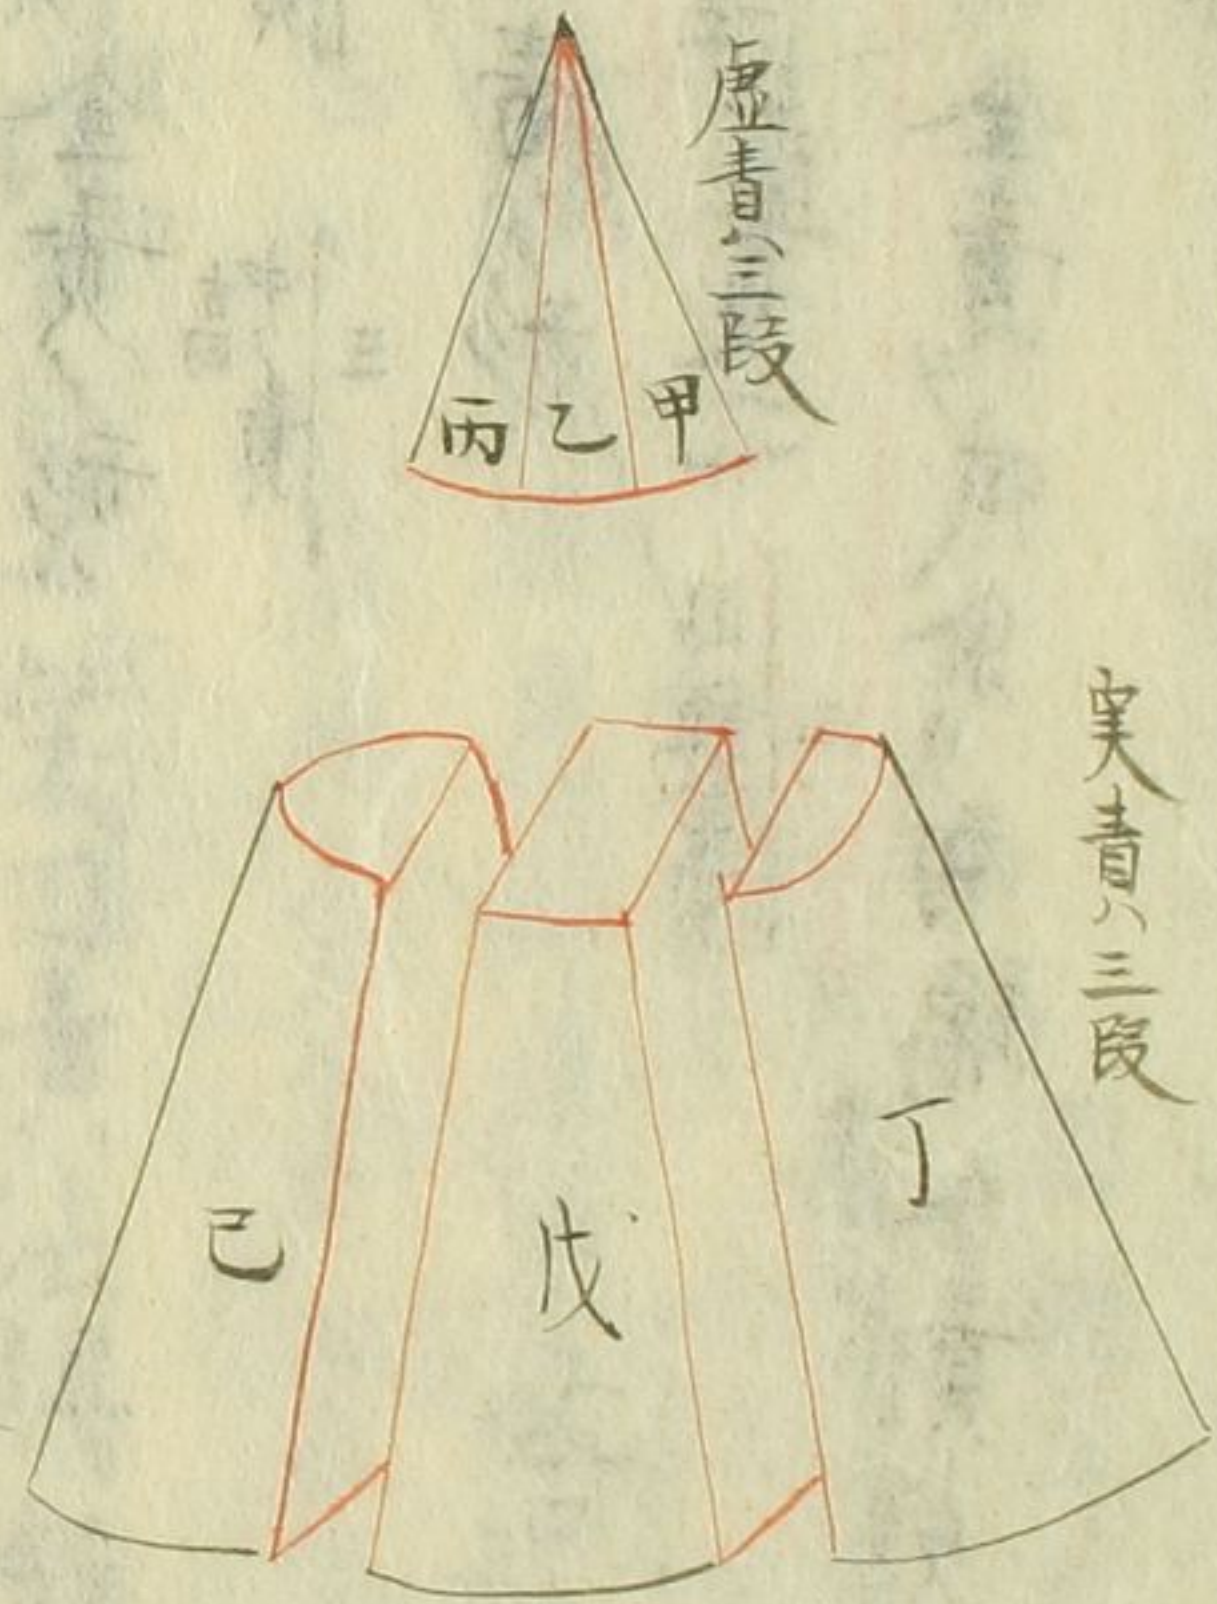 虚青ハ三段
甲
乙
丙
実青ハ三段
丁
戊
己